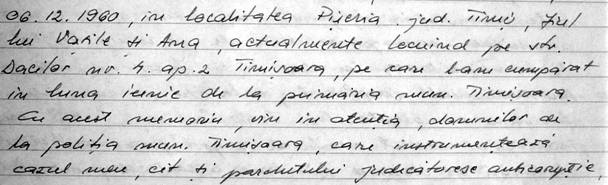 06.12.1960, in localitatea Pișchia jud. Timiș, fiul
lui Vasile și Ana, actualmente locuind pe str.
Dacilor nr. 4. ap. 2 Timișoara, pe care l-am cumpărat
in luna iunie de la primăria mun. Timișoara.
Cu acest memoriu, vin in atenția, domnilor de
la poliția mun. Timișoara, care instrumentează
cazul meu, cît și parchetului judecătoresc anticorupție,